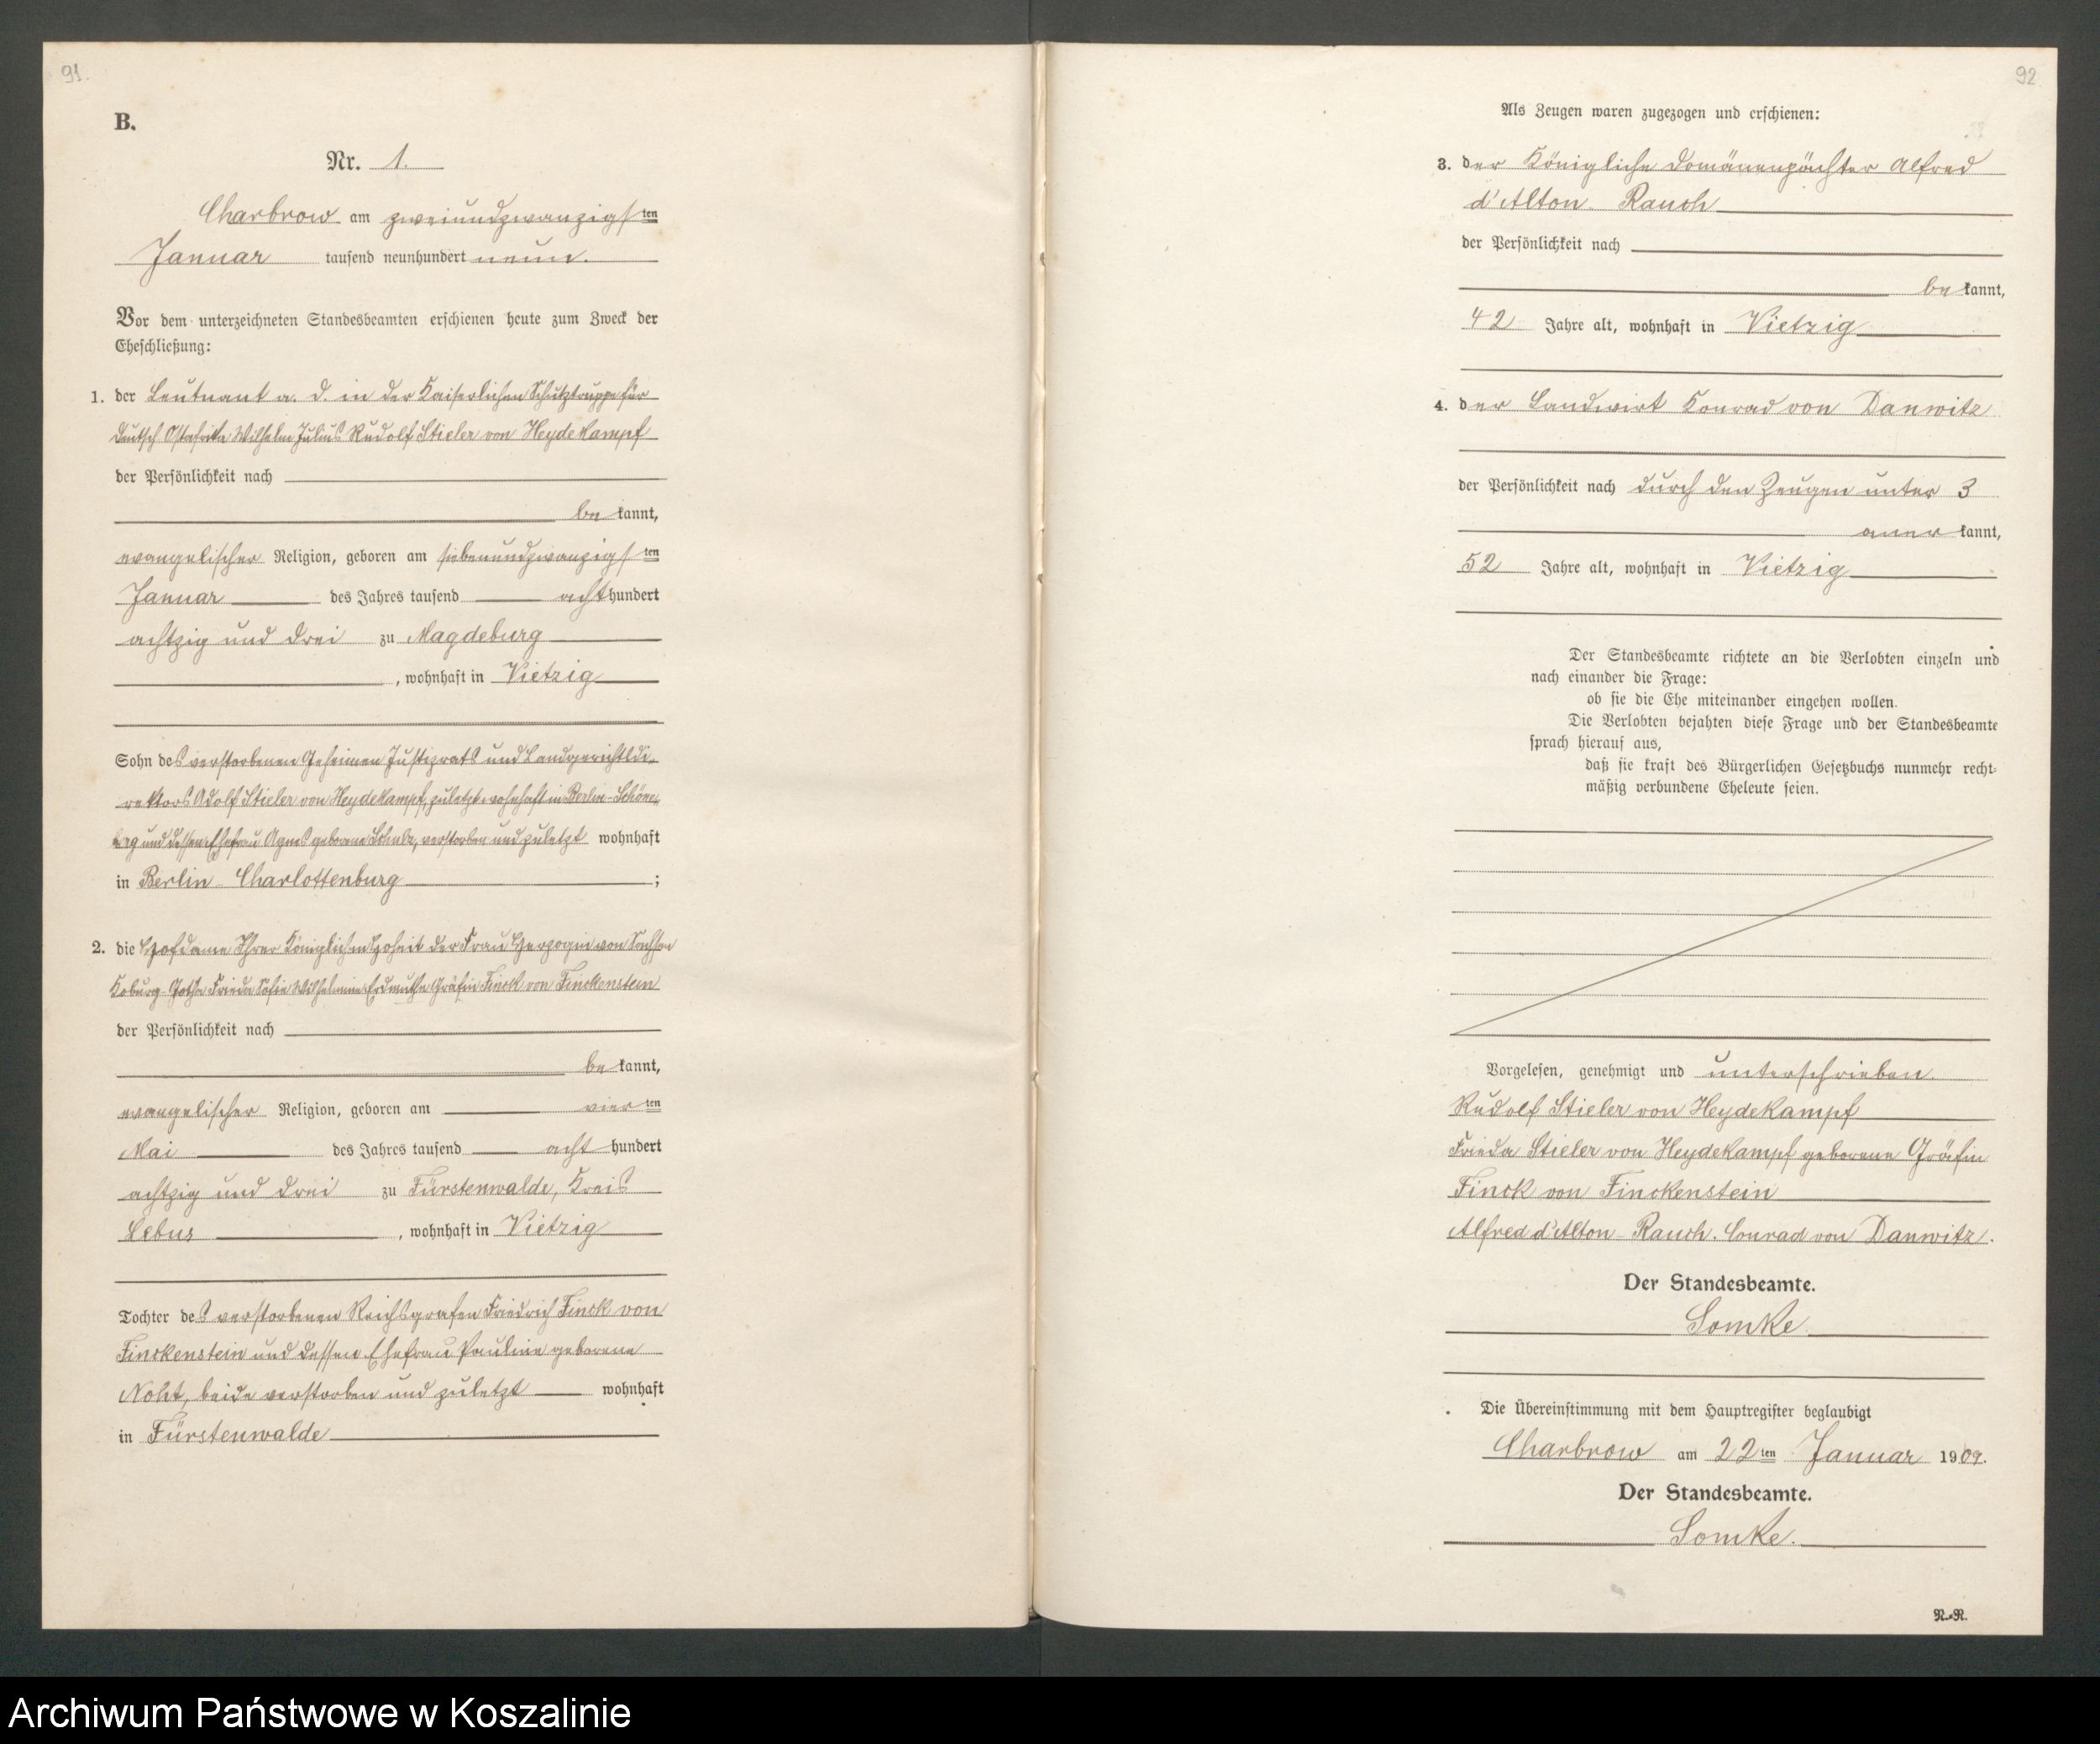 91.
B.
Nr. 1.
Charbrow am zweiundzwanzigsten
Januar tausend neunhundert neun.
Vor dem unterzeichneten Standesbeamten erschienen heute zum Zweck der
Eheschließung:
1. der Leutnant a. D. in der Kaiserlichen Schutztruppe für
Deutsch Ostafrika Wilhelm Julius Rudolf Stieler von Heydekampf
der Persönlichkeit nach
be kannt,
evangelischer Religion, geboren am siebenundzwanzigsten
Januar des Jahres tausend acht hundert
achtzig und drei zu Magdeburg
, wohnhaft in Vietzig
Sohn des verstorbenen Geheimen Justizrats und Landgerichtsdi-
rektors Adolf Stieler von Heydekampf, zuletzt wohnhaft in Berlin-Schöne-
berg und dessen Ehefrau Agnes geborene, verstorben und zuletzt wohnhaft
in Berlin-Charlottenburg ;
2. die Hofdame Ihrer Königlichen Hoheit der Frau Herzogin von Sachsen
Koburg-Gotha Frieda Sofie Wilhelmine Erdmuthe Gräfin Finck von Finckenstein
der Persönlichkeit nach
be kannt,
evangelischer Religion, geboren am vierten
Mai des Jahres tausend acht hundert
achtzig und drei zu Fürstenwalde, Kreis
Lebus , wohnhaft in Vietzig
Tochter des verstorbenen Reichsgrafen Friedrich Finck von
Finckenstein und dessen Ehefrau Pauline geborene
Noht, beide verstorben und zuletzt wohnhaft
in Fürstenwalde
92
Als Zeugen waren zugezogen und erschienen:
3. der Königliche Domänenpächter Alfred
d'Alton-Rauch
der Persönlichkeit nach
be kannt,
42 Jahre alt, wohnhaft in Vietzig
4. der Landwirt Konrad von Danwitz
der Persönlichkeit nach durch den Zeugen unter 3
aner kannt,
52 Jahre alt, wohnhaft in Vietzig
Der Standesbeamte richtete an die Verlobten einzeln und
nach einander die Frage:
ob sie die Ehe miteinander eingehen wollen.
Die Verlobten bejahten diese Frage und der Standesbeamte
sprach hierauf aus,
daß sie kraft des Bürgerlichen Gesetzbuchs nunmehr recht-
mäßig verbundene Eheleute seien.
Vorgelesen, genehmigt und unterschrieben
Rudolf Stieler von Heydekampf
Frieda Stieler von Heydekampf geborene Gräfin
Finck von Finckenstein
Alfred d'Alton-Rauch. Conrad von Danwitz.
Der Standesbeamte.
Lomke.
Die Übereinstimmung mit dem Hauptregister beglaubigt
Charbrow am 22ten Januar 1909.
Der Standesbeamte.
Lomke.
N.=R.
Archiwum Państwowe w Koszalinie